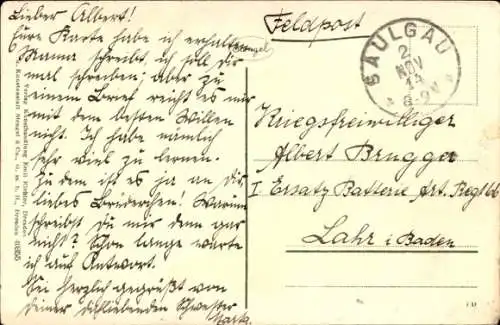 Lieber Albert!
Eure Karte habe ich erhalten
Mama schreibt, ich soll dir
mal schreiben; aber zu
einem Brief reicht es mir
mit dem besten Willen
nicht. Ich habe nämlich
sehr viel zu lernen.
Zu dem ist es ja an dir,
liebes Brüderchen. Warum
schreibst Du mir denn gar
nicht? Schon lange warte
ich auf Antwort.
Sei herzlich gegrüßt von
Deiner dichliebenden Schwester
Feldpost
Stempel
SAULGAU
2
NOV
14
8-9 V
Kriegsfreiwilliger
Albert Brugger
I Ersatz Batterie Art. Regt 66
Lahr i Baden
Verlag Kunsthandlung Emil Richter, Dresden
Kunstanstalt Stengel & Co., G. m. b. H., Dresden